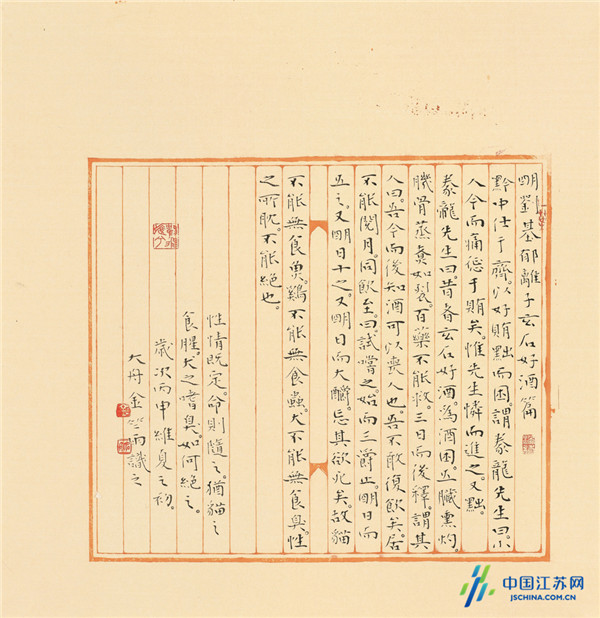 明劉基郁離子玄石好酒篇
黔中仕于齊。以好賄黜而困。謂豢龍先生曰。小
人今而痛懲于賄矣。惟先生憐而進之。又黜。
豢龍先生曰。昔者玄石好酒。爲酒困。五臟熏灼。
肌骨蒸煮如裂。百藥不能救。三日而後釋。謂其
人曰。吾今而後知酒可以喪人也。吾不敢復飲矣。居
不能閱月。同飲至。曰試嘗之。始而三爵止。明日而
五之。又明日十之。又明日而大釂。忘其欲死矣。故貓
不能無食魚。鷄不能無食蟲。犬不能無食臭。性
之所耽。不能絕也。
性情既定。命則隨之。猶貓之
食腥。犬之嗜臭。如何絕之。
歲次丙申維夏之初。
大舟金竺雨識之
中国江苏网
JSCHINA.COM.CN